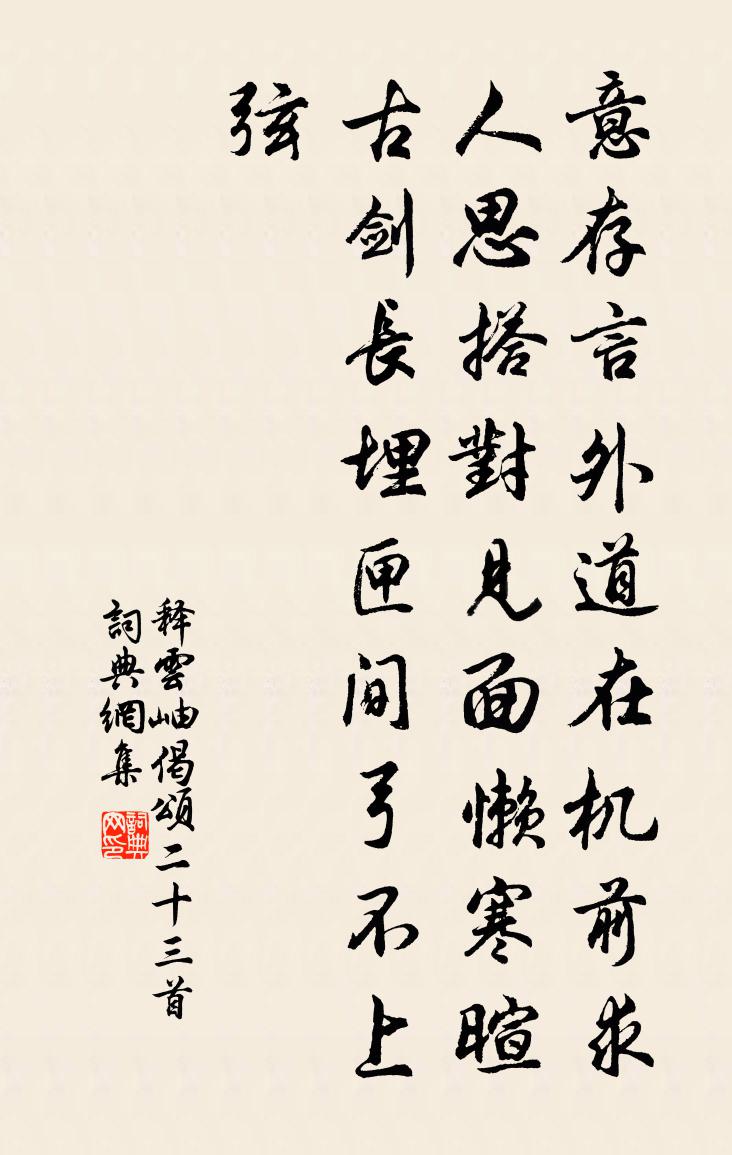 意存言外道在机前求
人思搭對見面懶寒暄
古剑長埋匣間弓不上
弦
释雲岫偈頌二十三首
詞典網集
詞典网印